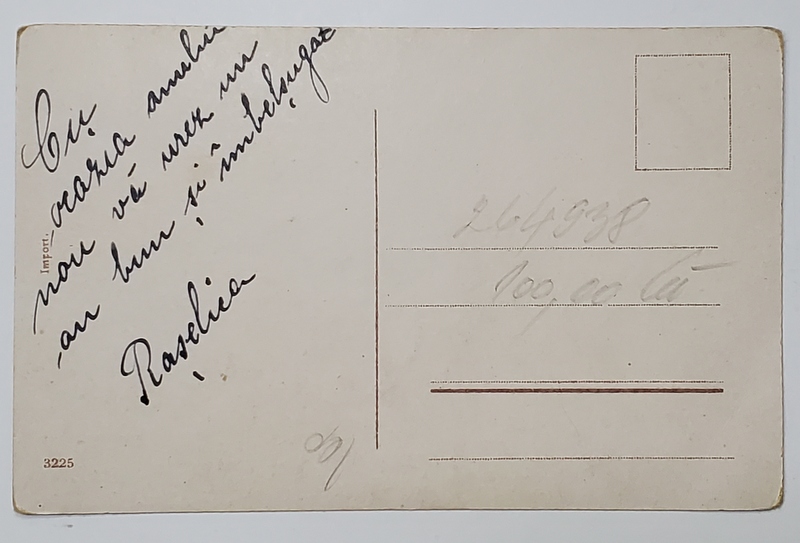 Cu
ocazia anului
nou vă urez un
an bun și îmbelșugat
Rașelica
Import.
3225
264938
100,00 lei